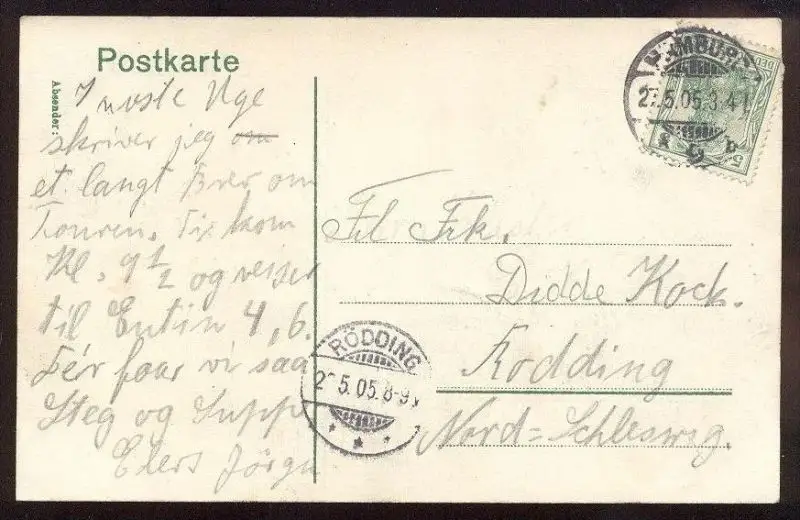 Postkarte
Absender:
I næste Uge
skriver jeg om
et langt Brev om
Touren. Vi kom
Kl. 9 1/2 og rejser
til Eutin 4,6.
Her faar vi saa
Steg og Suppe
Eders Jörgn
HAMBURG
5.05.3-4
Frk.
Didde Kock.
Rödding
Nord=Schleswig.
RÖDDING
5.05.8-9
5